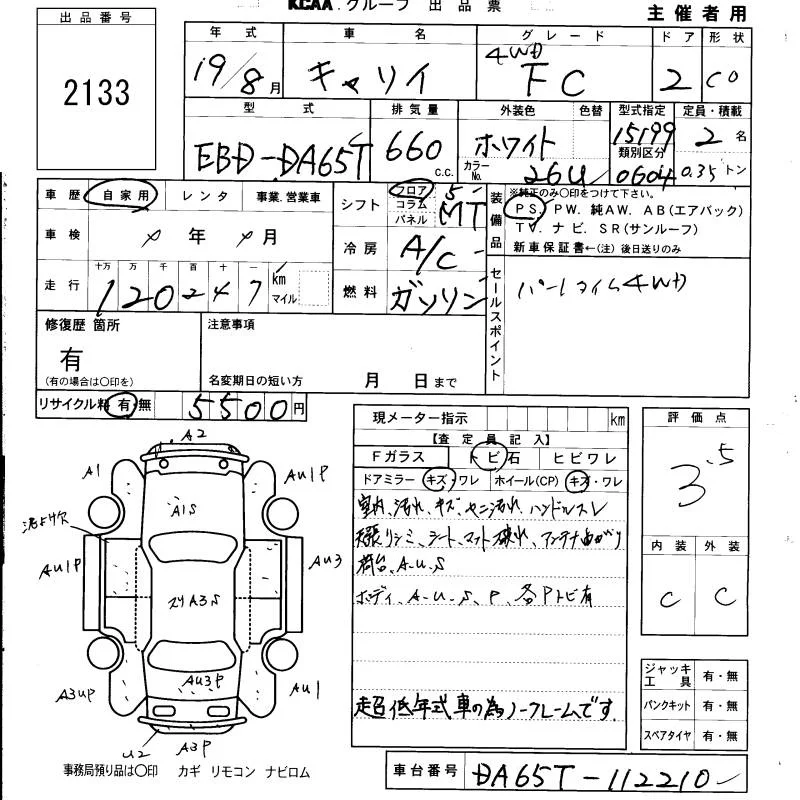 KCAA.グループ 出品票
主催者用
出品番号
2133
年式 車名 グレード ドア 形状
19/8月 キャリイ 4WD FC 2 CO
型式 排気量 外装色 色替 型式指定 定員・積載
EBD-DA65T 660 C.C. ホワイト 15199 2 名
カラーNo. 26U 類別区分 0604 0.35 トン
車歴 自家用 レンタ 事業.営業車
車検 年 月
走行 十万 万 千 百 十 一 km マイル
120247
シフト フロア コラム パネル 5 MT
冷房 A/C
燃料 ガソリン
装備品
※純正のみ○印をつけて下さい。
PS. PW. 純AW. AB(エアバック)
TV. ナビ. SR(サンルーフ)
新車保証書←(注)後日送りのみ
セールスポイント
パートタイム4WD
修復歴 箇所
有
(有の場合は○印を)
注意事項
名変期日の短い方 月 日まで
リサイクル料 有・無 5500円
現メーター指示 km
【査定員記入】
Fガラス トビ石 ヒビワレ
ドアミラー キズ・ワレ ホイール(CP) キズ・ワレ
室内、汚れ、キズ、ヤニ汚れ、ハンドルスレ
シート、マット破れ、アンテナ曲がり
荷台、A.U.S
ボディ、A.U.S、P、各Pトビ有
超低年式車の為ノークレームです.
評価点
3.5
内装 外装
C C
ジャッキ工具 有・無
パンクキット 有・無
スペアタイヤ 有・無
A2
A1
AU1P
A1S
AU1P
AU3
スリA3S
AU3P
A3UP
AU1
U2
A3P
事務局預り品は○印 カギ リモコン ナビロム
車台番号 DA65T-112210